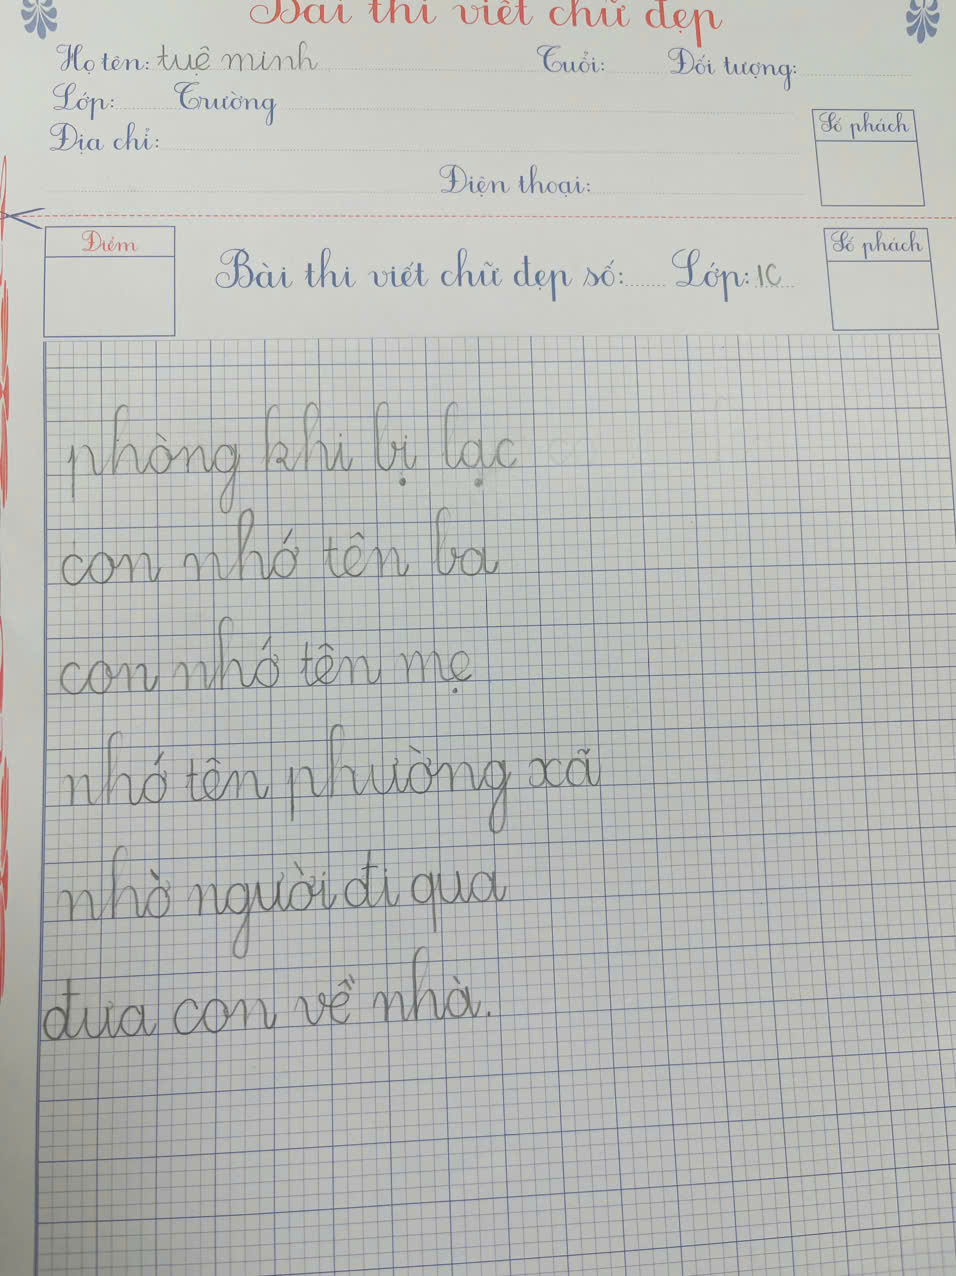 Bài thi viết chữ đẹp
Họ tên: tuệ minh Tuổi: Đối tượng:
Lớp: Trường
Địa chỉ:
Số phách
Điện thoại:
Điểm
Bài thi viết chữ đẹp số: Lớp: 1C
Số phách
phòng khi bị lạc
con nhớ tên ba
con nhớ tên mẹ
nhớ tên phường xã
nhờ người đi qua
đưa con về nhà.